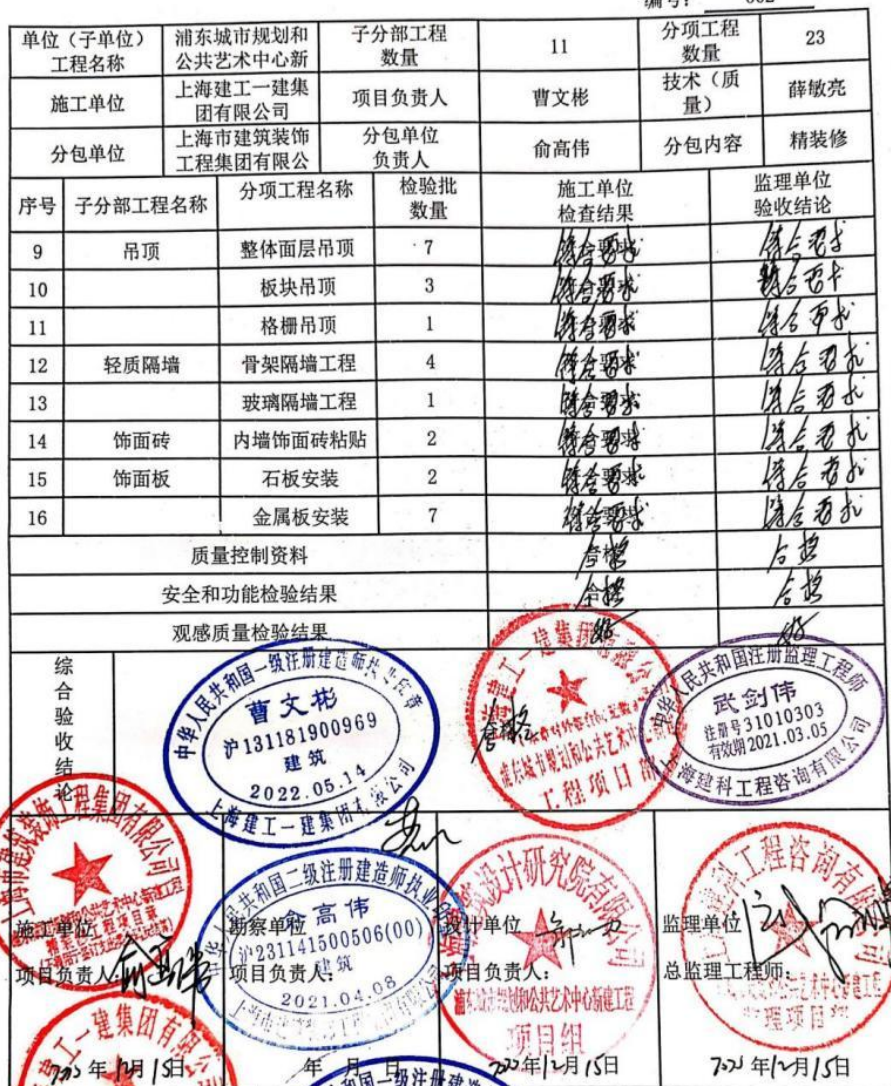 编号： 002
单位（子单位）工程名称 浦东城市规划和公共艺术中心新 子分部工程数量 11 分项工程数量 23
施工单位 上海建工一建集团有限公司 项目负责人 曹文彬 技术（质量） 薛敏亮
分包单位 上海市建筑装饰工程集团有限公 分包单位负责人 俞高伟 分包内容 精装修
序号 子分部工程名称 分项工程名称 检验批数量 施工单位检查结果 监理单位验收结论
9 吊顶 整体面层吊顶 7 符合要求 符合要求
10 板块吊顶 3 符合要求 符合要求
11 格栅吊顶 1 符合要求 符合要求
12 轻质隔墙 骨架隔墙工程 4 符合要求 符合要求
13 玻璃隔墙工程 1 符合要求 符合要求
14 饰面砖 内墙饰面砖粘贴 2 符合要求 符合要求
15 饰面板 石板安装 2 符合要求 符合要求
16 金属板安装 7 符合要求 符合要求
质量控制资料 合格 合格
安全和功能检验结果 合格 合格
观感质量检验结果 好 好
综合验收结论 合格
中华人民共和国一级注册建造师执业印章
曹文彬
沪131181900969
建筑
2022.05.14
上海建工一建集团有限公司
浦东城市规划和公共艺术
工程项目部
中华人民共和国注册监理工程师
武剑伟
注册号31010303
有效期2021.03.05
上海建科工程咨询有限公司
上海市建筑装饰工程集团有限公司
施工单位
项目负责人：俞高伟
年12月15日
共和国二级注册建造师执业
俞高伟
沪231141500506(00)
建筑
2021.04.08
勘察单位
项目负责人：
年 月 日
设计研究院有限公司
设计单位
项目负责人：
浦东城市规划和公共艺术中心新建工程
项目组
年12月15日
建科工程咨询有限公司
监理单位
总监理工程师：
年12月15日
一建集团有限公
和国一级注册建造